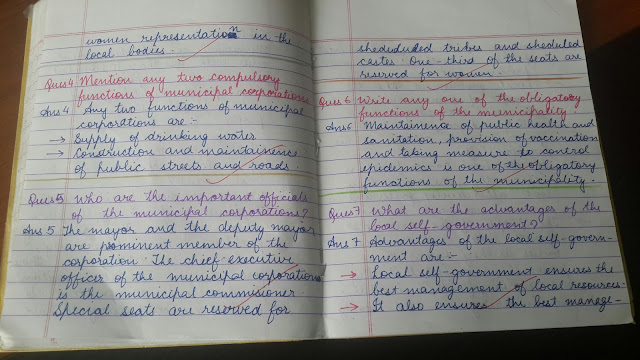 women representation in the
local bodies.
Ques4 Mention any two compulsory
functions of municipal corporations
Ans4 Any two functions of municipal
corporations are :-
→ Supply of drinking water
→ Construction and maintainence
of public streets and roads.
Ques5 Who are the important officials
of the municipal corporations?
Ans 5 The mayor and the deputy mayor
are prominent member of the
corporation. The chief executive
officer of the municipal corporations
is the municipal commissioner.
Special seats are reserved for
sheduduled tribes and sheduled
castes. One-third of the seats are
reserved for women.
Ques 6 Write any one of the obligatory
functions of the municipality.
Ans6 Maintainence of public health and
sanitation, provision of vaccination
and taking measure to control
epidemics is one of the obligatory
functions of the municipality.
Ques7 What are the advantages of the
local self-government?
Ans 7 Advantages of the local self-govern-
ment are :-
→ Local self-government ensures the
best management of local resources.
→ It also ensures the best manage-